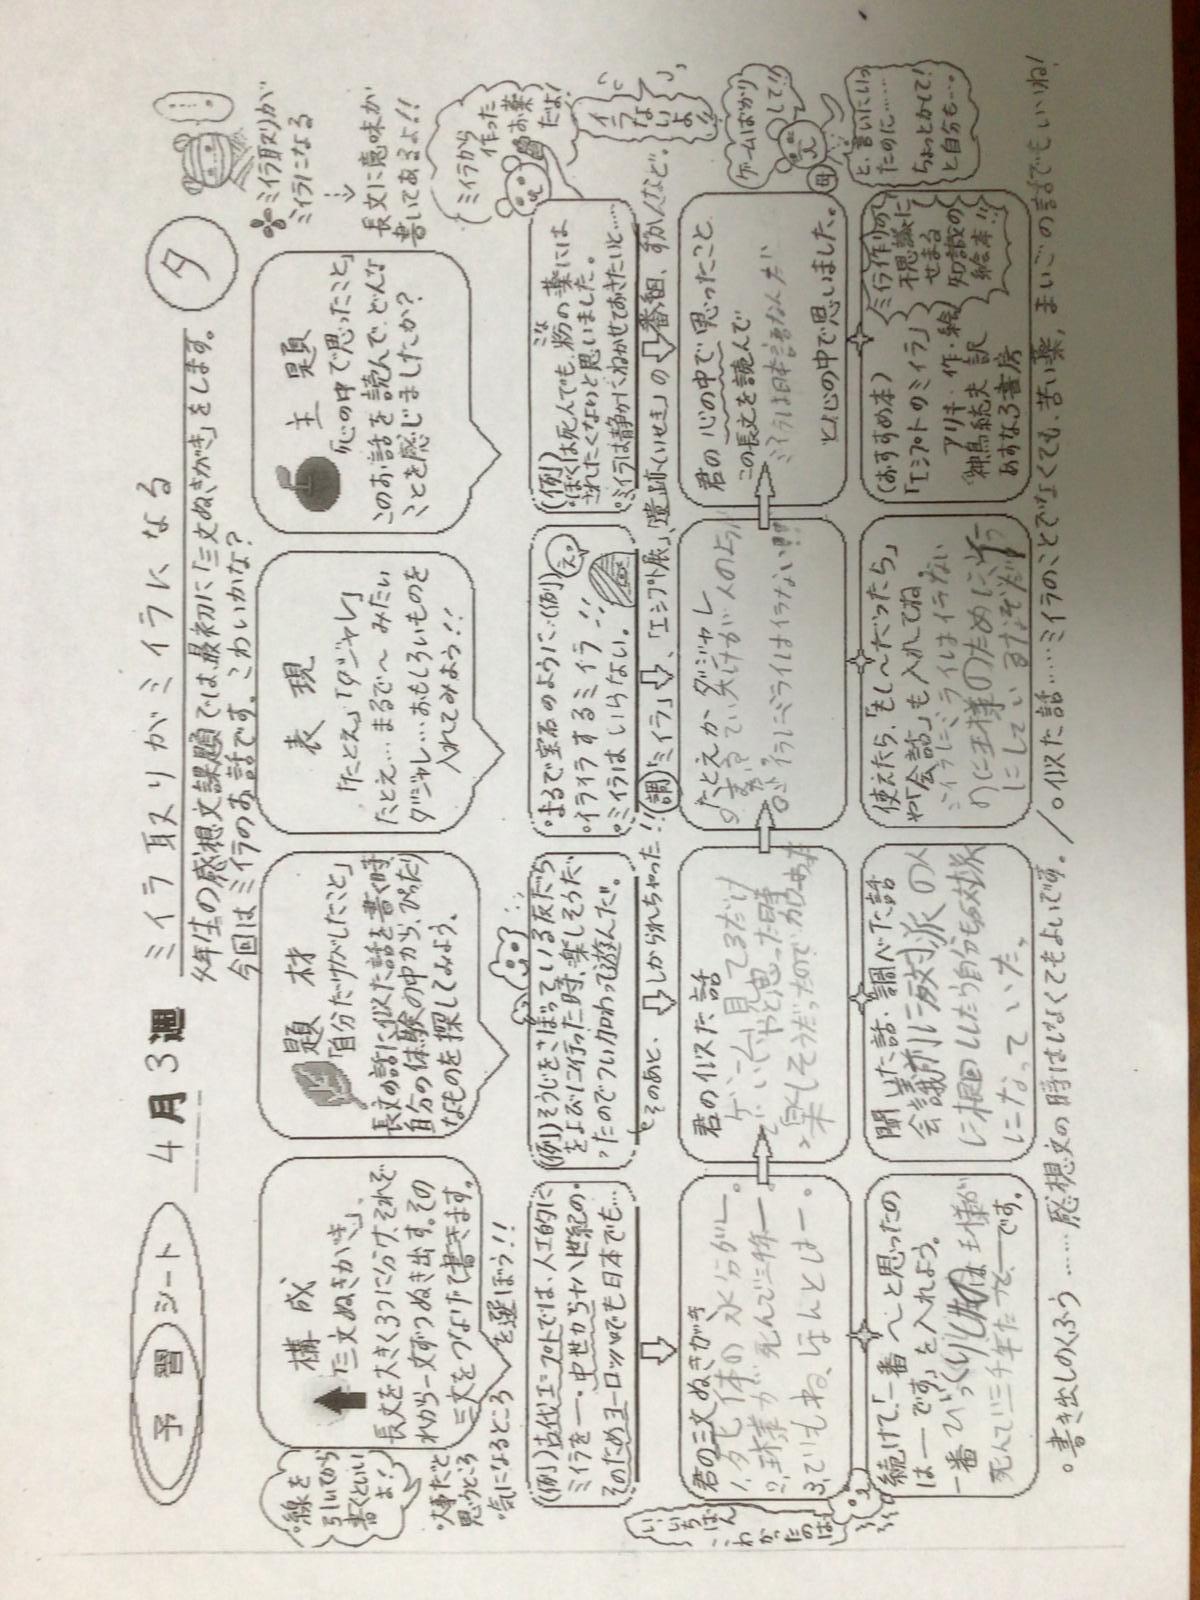 予習シート
４月３週
ミイラ取りがミイラになる
タ
年生の感想文課題では、最初に「三文ぬきがき」をします。
今回はミイラのお話です。こわいかな？
ミイラ取りが
ミイラになる
長文に意味が
書いてあるよ！！
線を
引いてから
書くといい
よ！
構成
「三文ぬきがき」
長文を大きく３つに分け、それぞ
れから一文ずつぬき出す。その
三文をつなげて書きます。
・大事だと
思うところ
・気になるところ
を選ぼう！！
題材
「自分だけがしたこと」
長文の話に似た話を書く時
自分の体験の中から、ぴったり
なものを探してみよう。
表現
「たとえ」「ダジャレ」
たとえ…まるで〜みたい
ダジャレ…おもしろいものを
入れてみよう！！
主題
「心の中で思ったこと」
このお話を読んで、どんな
ことを感じましたか？
ミイラから
作った
お薬
だよ！
（例）古代エジプトでは、人工的に
ミイラを―。中世から十八世紀の。
そのためヨーロッパでも日本でも…
（例）そうじをさぼっている友だち
をよびに行った時、楽しそうだ
ったのでつい加わって遊んだ。
そのあと、しかられちゃった！！
・まるで宝石のように…（例）
・イライラするミイラ！！
・ミイラはいらない。
え。
（例）
・ぼくは死んでも、粉の薬には
こな
されたくないと思いました。
・ミイラは静かにねかせてあきたいと……
調「ミイラ」、「エジプト展」、遺跡（いせき）の番組、ずかんなど。
君の三文ぬきがき
1.タヒ体の水分が―。
2.王様が死んで三千年―。
3.でもね、ほんとは―。
君の似た話
ゲームを見てるだけ
でいいやと思った時
楽しそうだったので加わった
たとえかダジャレ
ミイラにミライはイラない!!
君の心の中で思ったこと
この長文を読んで
ミイラは日本語なんだ
と心の中で思いました。
ゲームばかり
して!!
母
と、言いにいっ
たのに……
ちょっとかして！
と自分も…。
いちばん
こわかったのは
続けて、「一番〜と思ったの
は―です」を入れよう。
一番びっくりしたのは王様が
死んで三千年たって―です。
聞いた話・調べた話
会議前に反対派の人
に根回ししたら自分も反対派
になっていた。
使えたら、「もし〜だったら」
や「会話」も入れてね。
ミイラにミライはイラない
のに王様ののために
にしているなぞだ
（おすすめ本）
「エジプトのミイラ」
アリキ・作・絵
神鳥統夫 訳
あすなろ書房
ミイラ作りの
不思議に
せまる
知識の
絵本!!
・書き出しのくふう……感想文の時はしなくてもよいです。／・似た話……ミイラのことでなくても、苦い薬、まいごの話でもいいね！